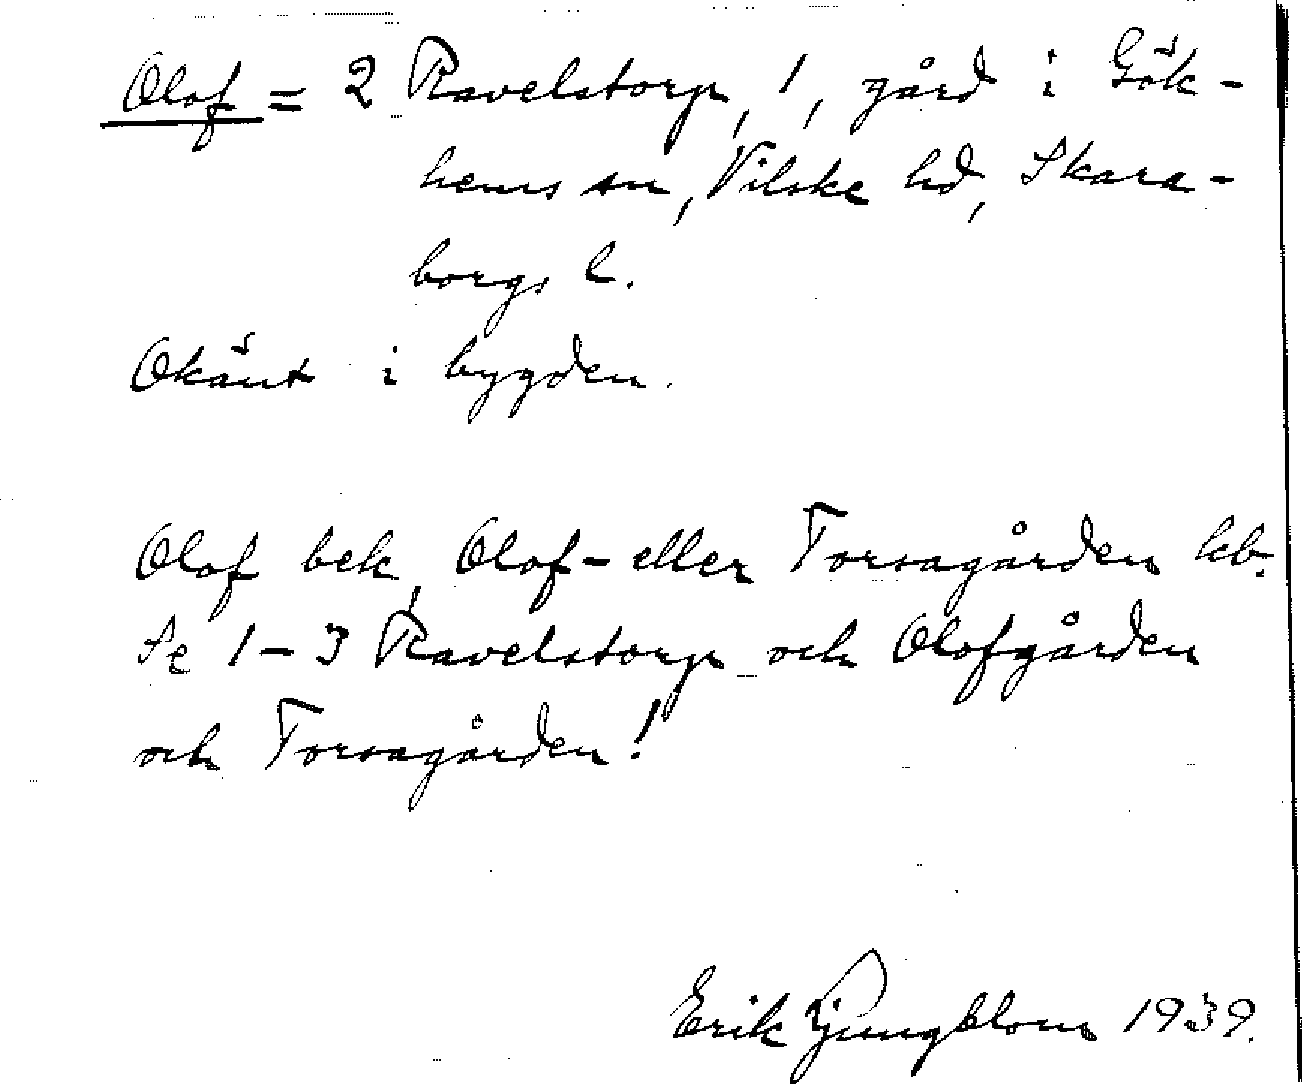 Olof = 2 Ravelstorp, 1, gård i Gök-
hems sn, Vilske hd, Skara-
borgs l.
Okänt i bygden.
Olof bek, Olof- eller Torsagården kb.
Se 1-3 Ravelstorp och Olofgården
och Torsagården!
Erik Ljungblom 1939.